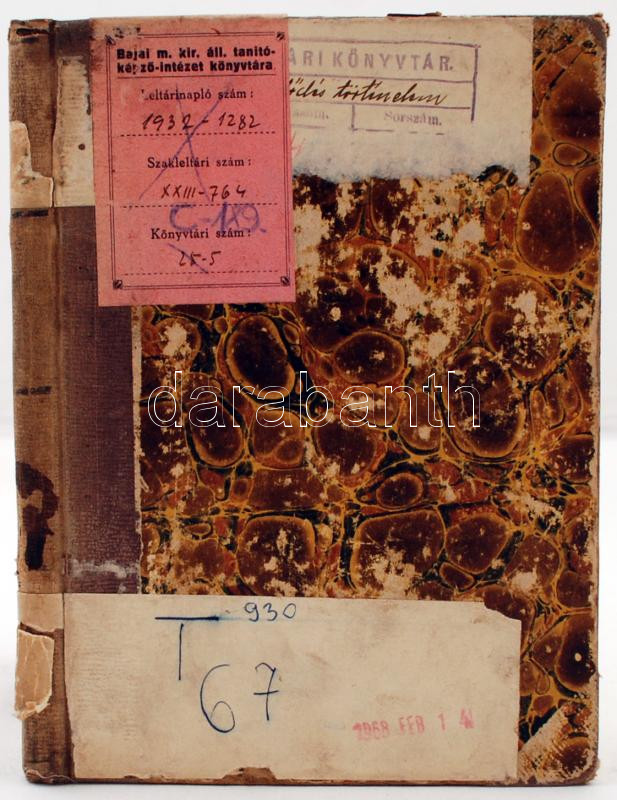 Bajai m. kir. áll. tanító-
képző-intézet könyvtára
Leltárinapló szám:
1932-1282
Szakleltári szám:
XXIII-764
C-149.
Könyvtári szám:
25-5
ÁRI KÖNYVTÁR.
történelem
Sorszám.
darabanth
930
T
67
1968 FEB 1 4